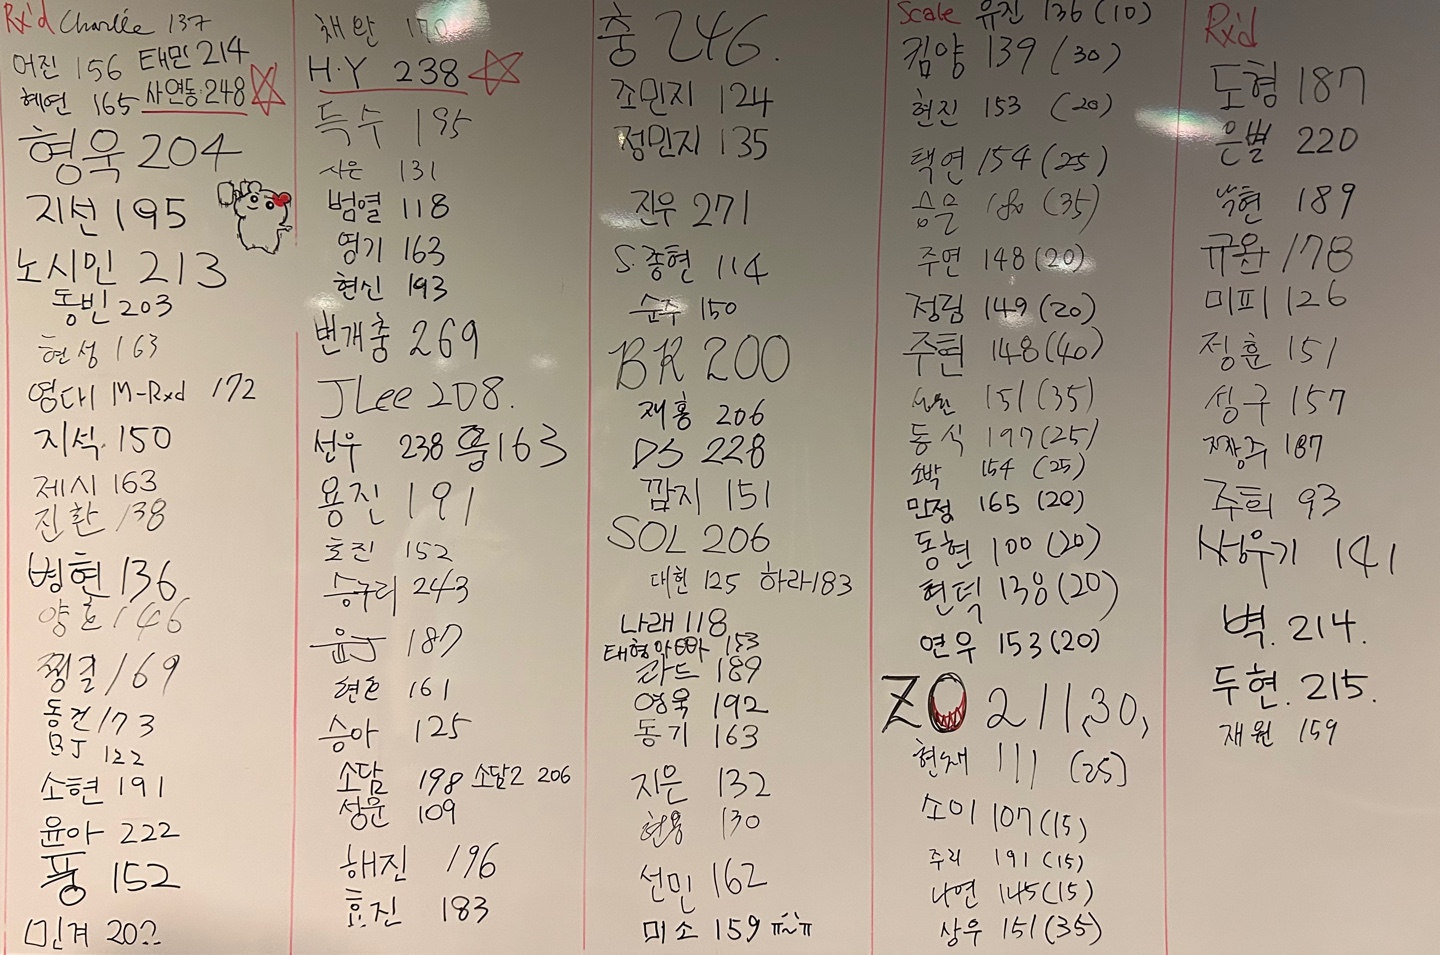 Rx'd Charlie 137
어진 156 태민 214
혜연 165 사연동 248
형욱 204
지선 195
노시민 213
동빈 203
현성 163
영대 M-Rxd 172
지석. 150
제시 163
진환 138
병현 136
양호 146
찡걸 169
동건 173
BJ 122
소현 191
윤아 222
풍 152
민겨 202
채완 170
H.Y 238
득수 195
사은 131
범열 118
영기 163
현신 193
번개충 269
JLee 208.
선우 238 홍 163
용진 191
호진 152
승구리 243
윤J 187
현호 161
승아 125
소담 198 소담2 206
성문 109
해진 196
효진 183
충 246.
조민지 124
정민지 135
진우 271
S.종현 114
순주 150
BK 200
재홍 206
DS 228
깜지 151
SOL 206
대헌 125 하라 183
나래 118
태형 153
라드 189
영욱 192
동기 163
지은 132
현용 130
선민 162
미소 159 ㅠ~ㅠ
Scale 유진 136 (10)
킴양 139 (30)
현진 153 (20)
택연 154 (25)
승은 180 (35)
주연 148 (20)
정림 149 (20)
주현 148 (40)
151 (35)
동식 197 (25)
소박 154 (25)
민정 165 (20)
동현 100 (20)
현덕 138 (20)
연우 153 (20)
ZO 211,30,
현재 111 (25)
소이 107 (15)
주리 191 (15)
나연 145 (15)
상우 151 (35)
Rx'd
도형 187
은별 220
낙현 189
규완 178
미피 126
정훈 151
성구 157
짜장주 187
주희 93
썽우기 141
벽. 214.
두현. 215.
재원 159